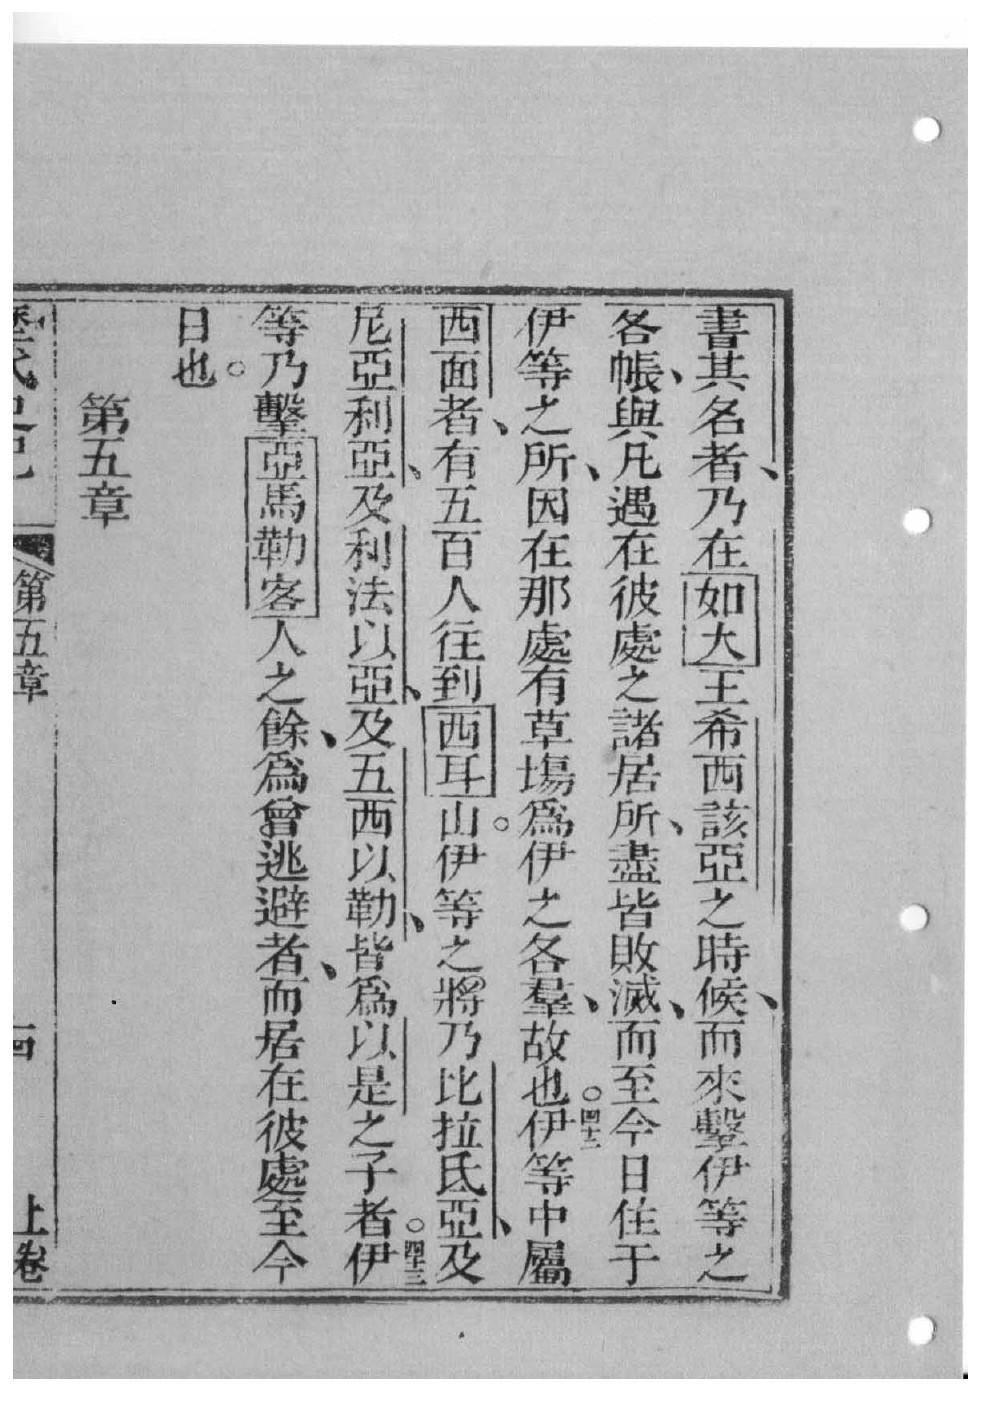 書其名者、乃在如大王希西該亞之時候、而來擊伊等之
各帳、與凡遇在彼處之諸居所、盡皆敗滅、而至今日住于
伊等之所、因在那處有草塲爲伊之各羣、故也。四十二伊等中屬
西面者、有五百人往到西耳山。伊等之將乃比拉氐亞、及
尼亞利亞、及利法以亞、及五西以勒、皆爲以是之子者。四十三伊
等乃擊亞馬勒客人之餘、爲曾逃避者、而居在彼處至今
日也。
第五章
第五章
上卷